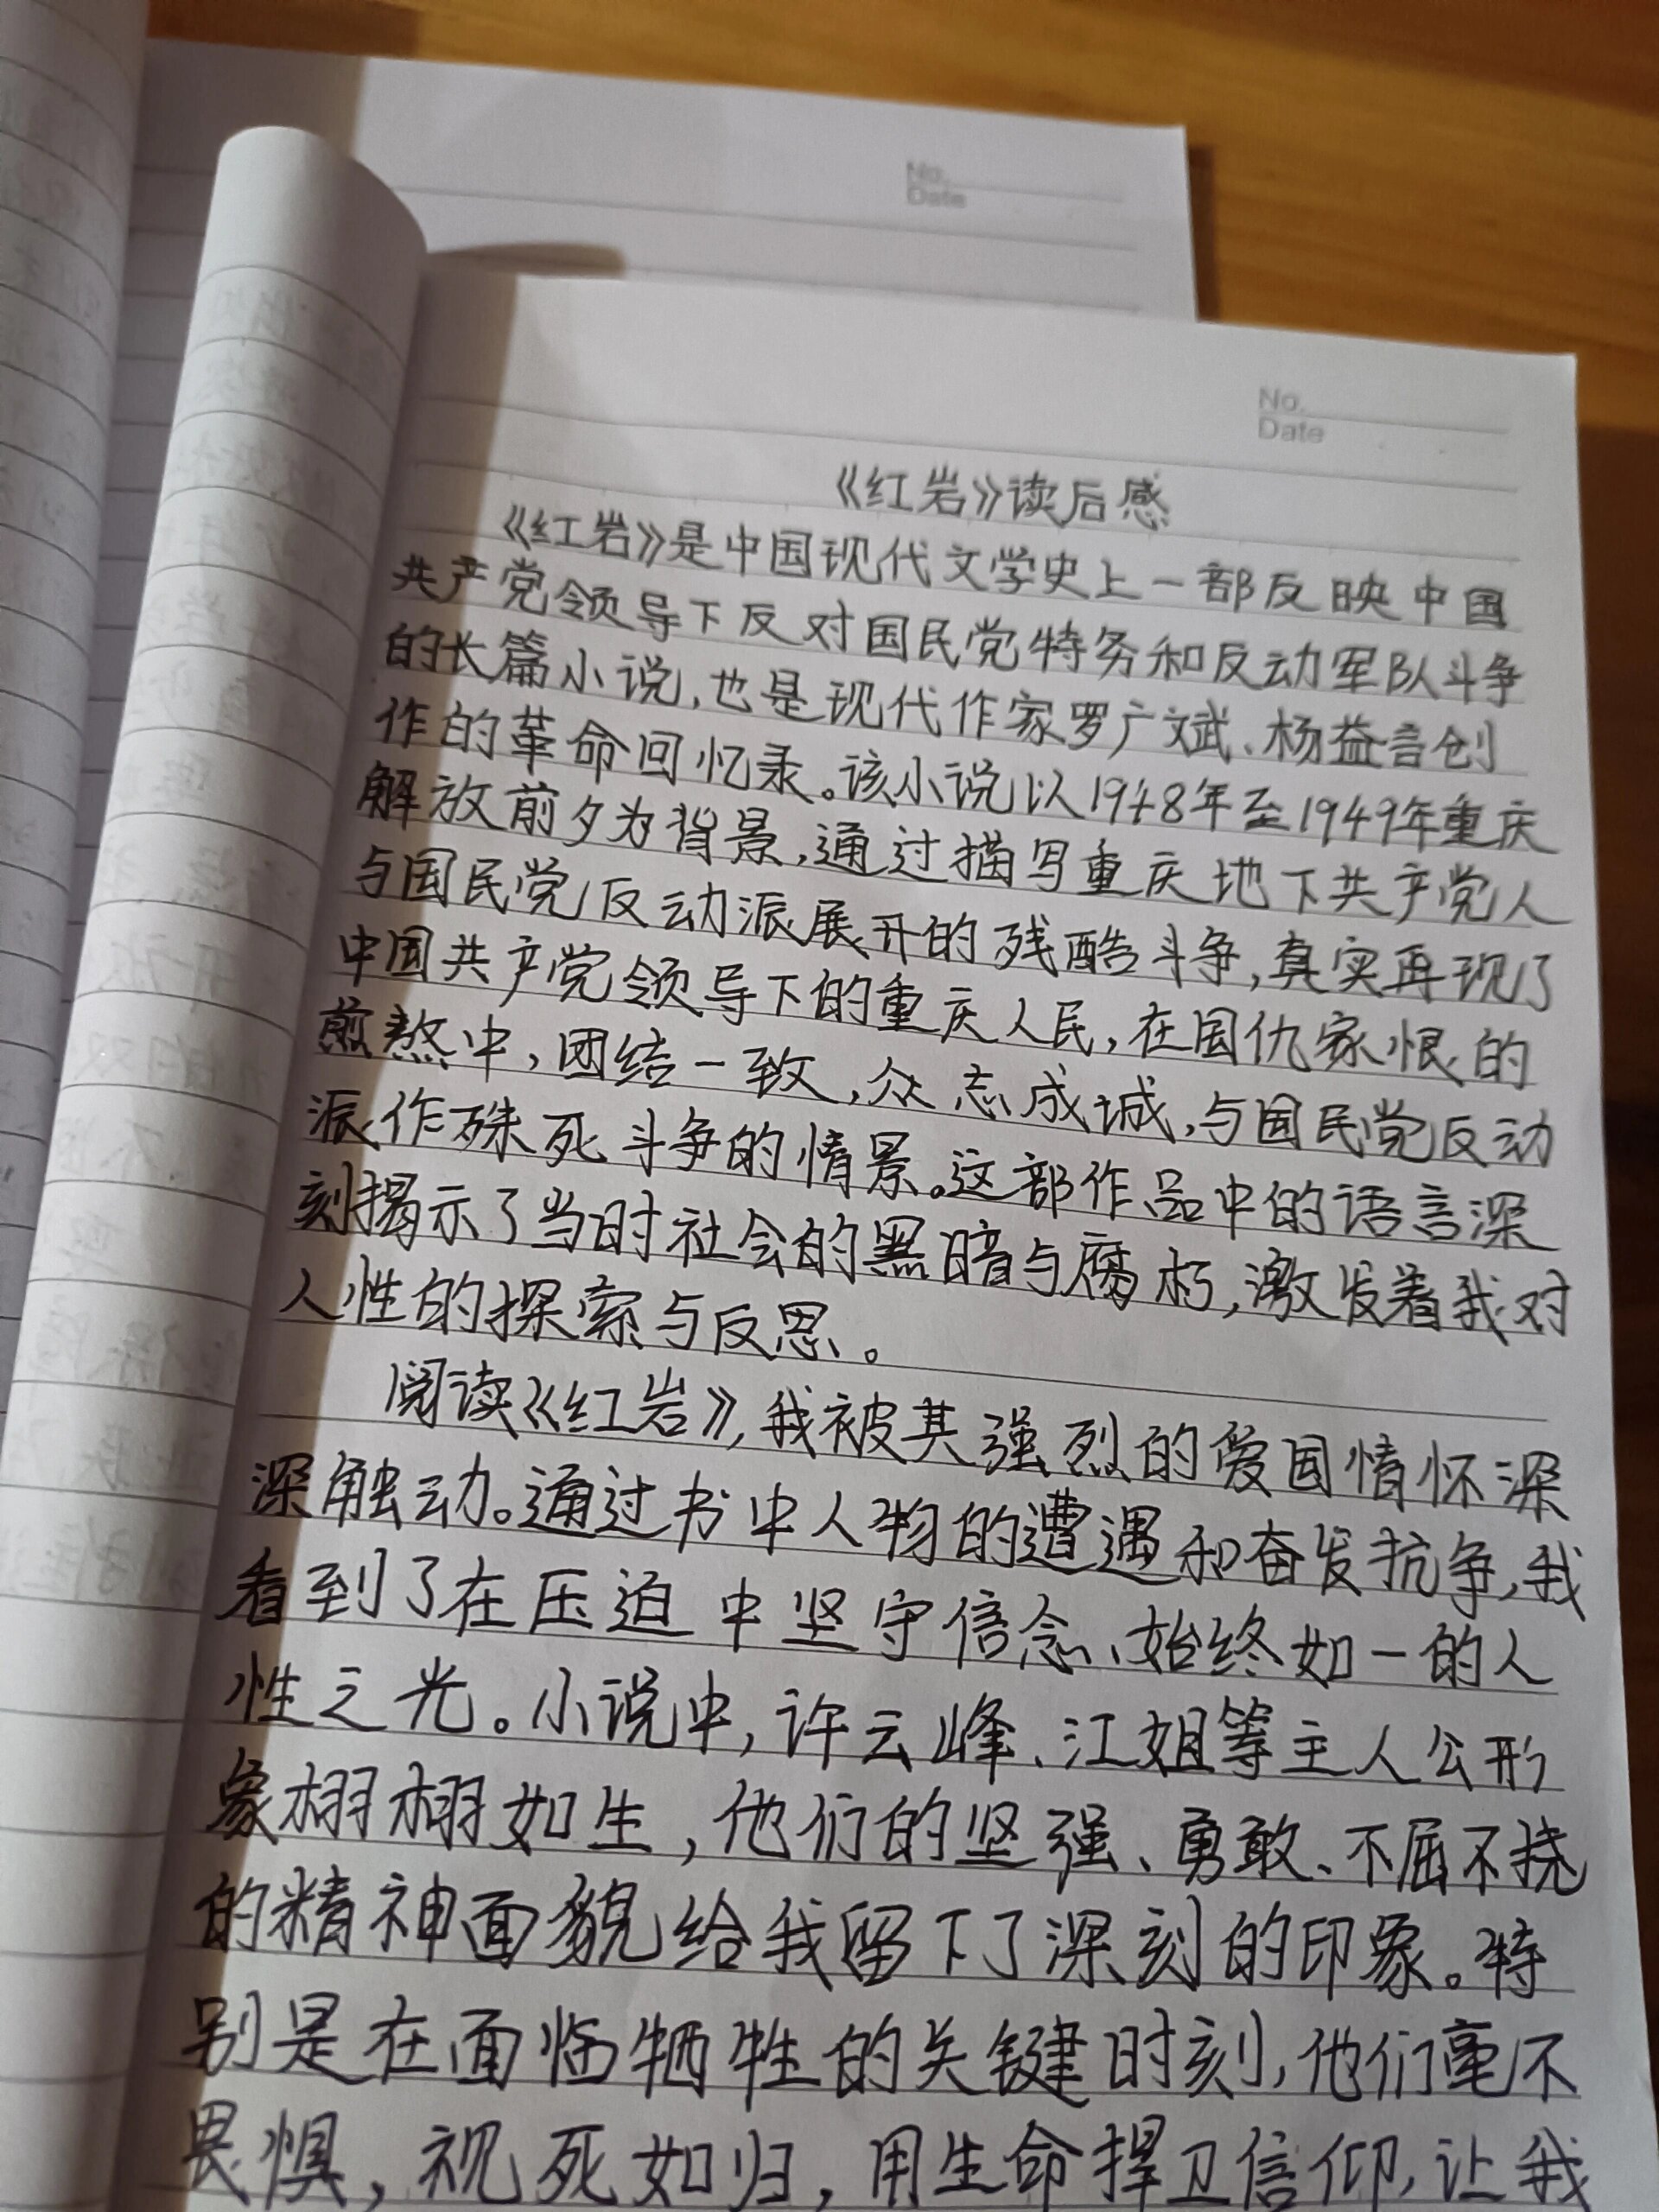 No.
Date
No.
Date
《红岩》读后感
《红岩》是中国现代文学史上一部反映中国
共产党领导下反对国民党特务和反动军队斗争
的长篇小说,也是现代作家罗广斌、杨益言创
作的革命回忆录。该小说以1948年至1949年重庆
解放前夕为背景,通过描写重庆地下共产党人
与国民党反动派展开的残酷斗争,真实再现了
中国共产党领导下的重庆人民,在国仇家恨的
煎熬中,团结一致,众志成城,与国民党反动
派作殊死斗争的情景。这部作品中的语言深
刻揭示了当时社会的黑暗与腐朽,激发着我对
人性的探索与反思。
阅读《红岩》,我被其强烈的爱国情怀深
深触动。通过书中人物的遭遇和奋发抗争,我
看到了在压迫中坚守信念、始终如一的人
性之光。小说中,许云峰、江姐等主人公形
象栩栩如生,他们的坚强、勇敢、不屈不挠
的精神面貌给我留下了深刻的印象。特
别是在面临牺牲的关键时刻,他们毫不
畏惧,视死如归,用生命捍卫信仰,让我